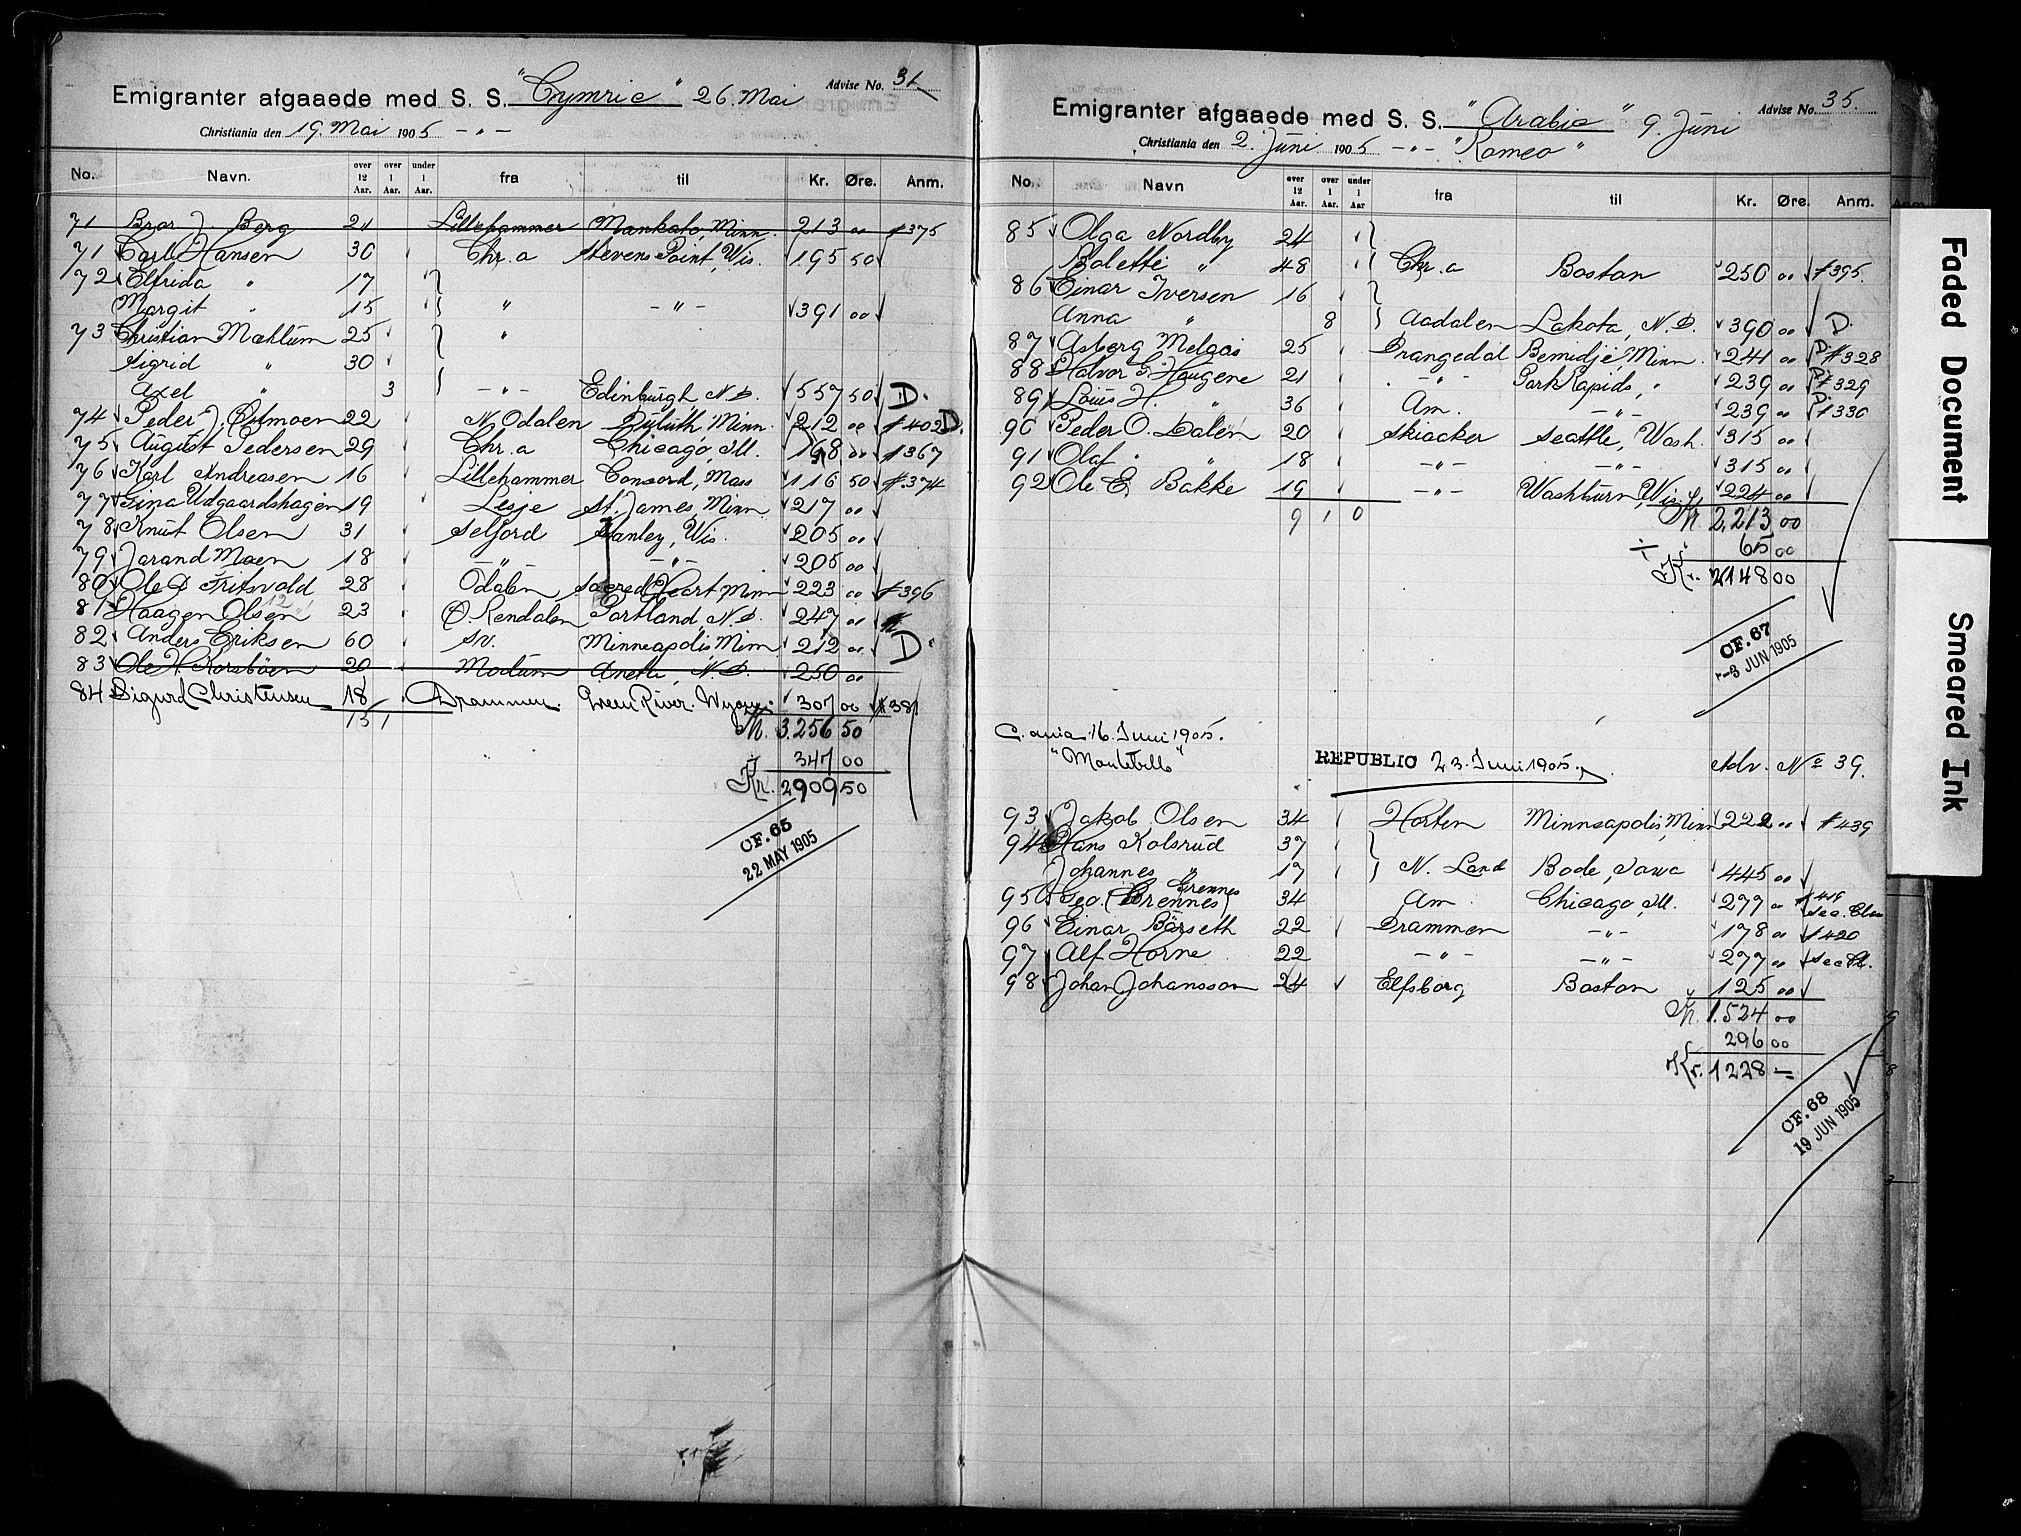 Emigranter afgaaede med S. S. "Cymric" 26 Mai Advise No. 31
Christiania den 19. Mai 1905 - " -
No. Navn. over 12 Aar. over 1 Aar. under 1 Aar. fra til Kr. Øre. Anm.
71 Bror J. Berg 21 Lillehammer Mankato, Minn. 213 00 #375
71 Carl Hansen 30 Chr.a Stevens Point, Wis. 195 50
72 Elfrida " 17
Margit " 15 " - " - 391 00
73 Christian Mæhlum 25 "
Sigrid " 30
Axel 3 - " - Edinburgh N.D. 557 50 D.
74 Peder J. 22 N. Odalen Duluth Minn. 212 00 #402 D.
75 August Pedersen 29 Chr.a Chicago, Ill. 168 00 #367
76 Karl Andreasen 16 Lillehammer Concord, Mass 116 50 #374
77 Gina Udgaardshagen 19 Lesje St. James, Minn 217 00
78 Knut Olsen 31 Selford Stanley, Wis. 205 00
79 Jorand Moen 18 - " - - " - 205 00
80 Ole D Fritsvold 28 Odalen Sacred Heart, Minn 223 00 #396
81 Haagen Olsen 23 O. Rendalen Portland, N.D. 247 00
82 Anders Eriksen 60 sv. Minneapolis, Minn 212 00 D.
83 Ole H. Korsbøen 20 Modum Aneta, N.D. 250 00
84 Sigurd Christensen 18 Drammen Green River. Wyom. 307 00 #381
15 1 Kr. 3.256 50
347 00
Kr. 2909 50
CF. 65
22 MAY 1905
Emigranter afgaaede med S. S. "Arabic" 9. Juni Advise No. 35.
Christiania den 2. Juni 1905 - " - "Romeo"
No. Navn over 12 Aar. over 1 Aar. under 1 Aar fra til Kr. Øre. Anm.
85 Olga Nordby 24
Bolette " 48 Chr.a Boston 250 00 #395.
86 Einar Iversen 16
Anna " 8 Aadalen Lakota, N.D. 390 00 D.
87 Asberg Melaas 25 Drangedal Bemidje Minn. 241 00 D. #328
88 Halvor G Haugene 21 - " - Park Rapids, " 239 00 D. #329
89 Louis H. " 36 Am. - " - 239 00 D. #330
90 Peder O. Dalen 20 Skiacker Seattle, Wash. 315 00
91 Olaf " " 18 - " - - " - 315 00
92 Ole E. Bakke 19 - " - Washburn, Wis. 224 00
9 1 0 Kr. 2,213 00
÷ 65 00
Kr. 2148 00
CF. 67
-3 JUN 1905
C. ania 16. Juni 1905.
"Montebello" REPUBLIC 23. Juni 1905. Adv. No 39.
93 Jakob Olsen 34 Horten Minneapolis, Minn 222 00 #439
94 Hans Kolsrud 37
Johannes " 17 N. Land Bode, Iowa 445 00
Grennes
95 Geo. (Brennes) 34 Am. Chicago, Ill. 277 00 #419 Sec. Clas
96 Einar Børseth 22 Drammen - " - 178 00 #420
97 Alf Horne 22 - " - - " - 277 00 Sec Cl.
98 Johan Johansson 24 Elfsborg Boston 125 00
Kr. 1.524 00
296 00
Kr. 1228 —
CF. 68
19 JUN 1905
Faded Document
Smeared Ink